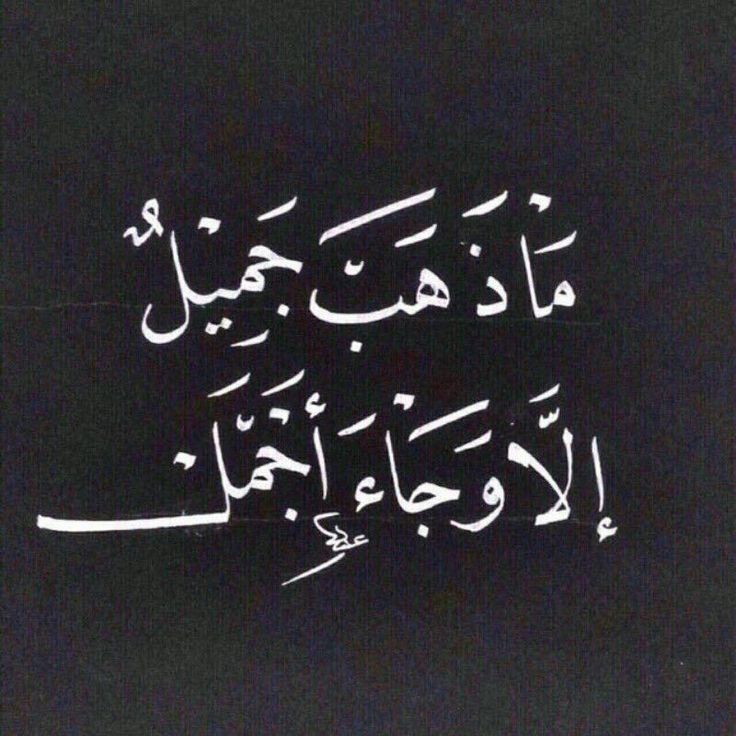 مَاْ ذَ هَبَّ جَمِيْلٌ
إِلَّا وَجَاْءَ أَجْمَلْ